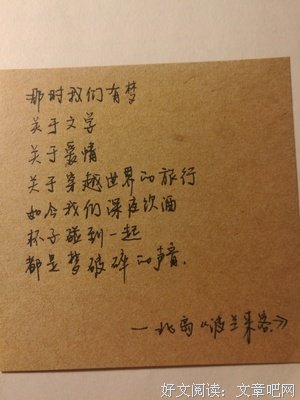 那时我们有梦
关于文学
关于爱情
关于穿越世界的旅行
如今我们深夜饮酒
杯子碰到一起
都是梦破碎的声音.
—北岛《波兰来客》
好文阅读：文章吧网